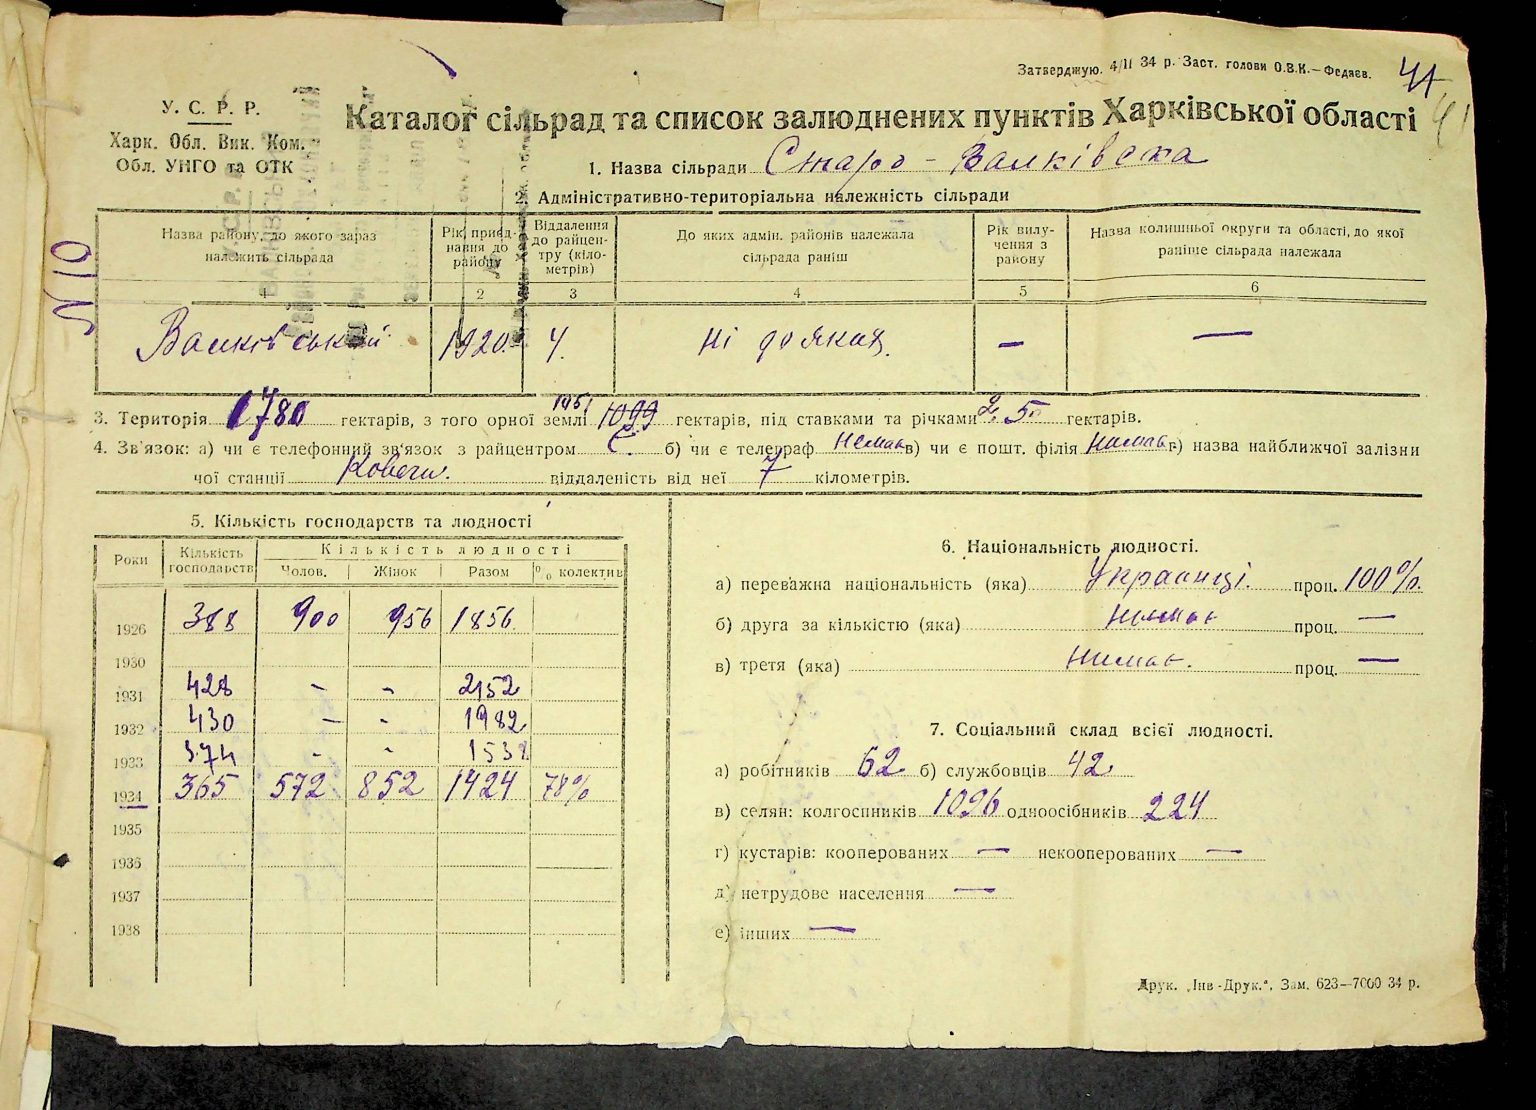 Затверджую. 4/II 34 р. Заст. голови О.В.К.—Федаєв.
41
У. С. Р. Р.
Харк. Обл. Вик. Ком.
Обл. УНГО та ОТК
Каталог сільрад та список залюднених пунктів Харківської області
1. Назва сільради Старо - Валківська
2. Адміністративно-територіальна належність сільради
N 10
Назва району, до якого зараз належить сільрада | Рік приєднання до району | Віддалення до райцентру (кілометрів) | До яких адмін. районів належала сільрада раніш | Рік вилучення з району | Назва колишньої округи та області, до якої раніше сільрада належала
1 | 2 | 3 | 4 | 5 | 6
Валківський | 1920. | 4. | Ні до яких. | — | —
3. Територія 1780 гектарів, з того орної землі 1951 1099 гектарів, під ставками та річками 2.5 гектарів.
4. Зв'язок: а) чи є телефонний зв'язок з райцентром Є. б) чи є телеграф Немає в) чи є пошт. філія Немає г) назва найближчої залізни
чої станції Ковеги. віддаленість від неї 7 кілометрів.
5. Кількість господарств та людності
Роки | Кількість господарств | Кількість людності
Чолов. | Жінок | Разом | % колектив
1926 388 900 956 1856.
1930
1931 428 - - 2152
1932 430 - - 1982
1933 374 - - 1538
1934 365 572 852 1424 78%
1935
1936
1937
1938
6. Національність людності.
а) переважна національність (яка) Украинці. проц. 100%.
б) друга за кількістю (яка) Немає проц. —
в) третя (яка) Немає. проц. —
7. Соціальний склад всієї людності.
а) робітників 62 б) службовців 42
в) селян: колгоспників 1096 одноосібників 224
г) кустарів: кооперованих — некооперованих —
д) нетрудове населення —
е) інших —
Друк. „Інв-Друк.", Зам. 623—7000 34 р.